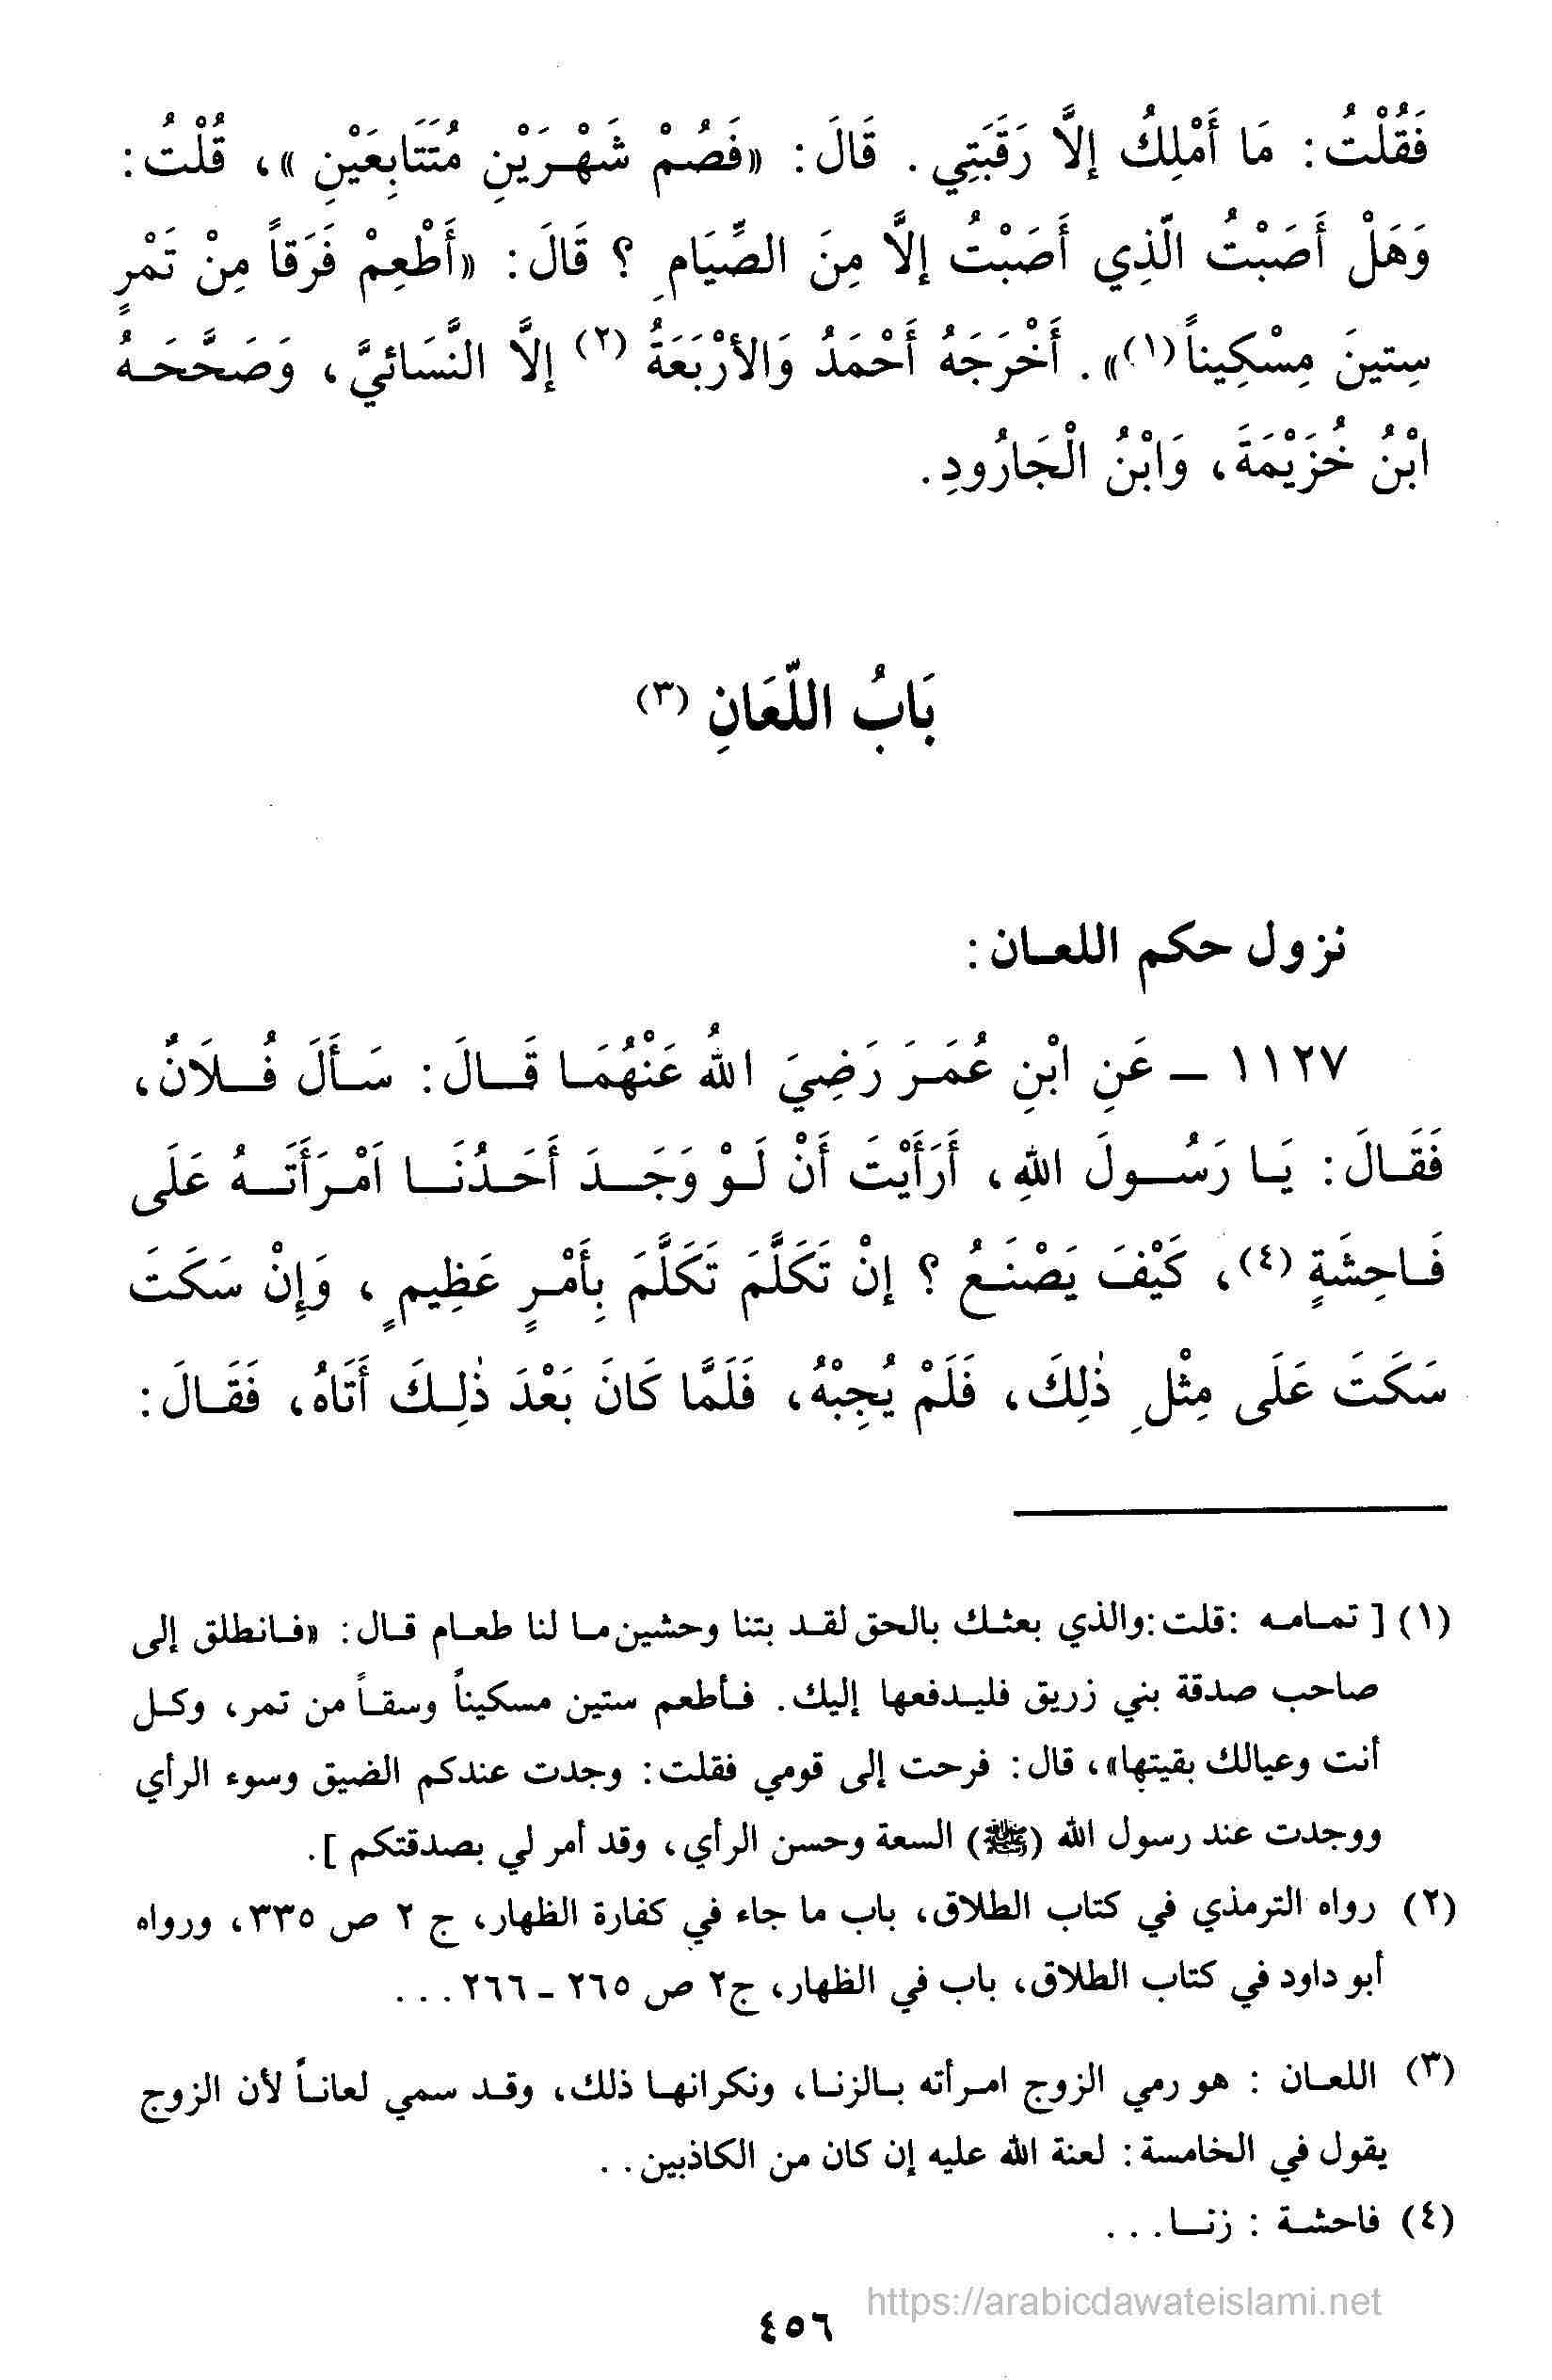 فَقُلْتُ: مَا أَمْلِكُ إلاَّ رَقَبَتِي. قَالَ: «فَصُمْ شَهْرَيْنِ مُتَتَابِعَيْنِ»، قُلْتُ:
وَهَلْ أَصَبْتُ الَّذِي أَصَبْتُ إلاَّ مِنَ الصِّيَامِ؟ قَالَ: «أَطْعِمْ فَرَقاً مِنْ تَمْرٍ
سِتينَ مِسْكِيناً(١)». أَخْرَجَهُ أَحْمَدُ وَالأرْبَعَةُ (٢) إلاَّ النَّسَائيَّ، وَصَحَّحَهُ
ابْنُ خُزَيْمَةَ، وَابْنُ الْجَارُودِ.
بَابُ اللّعَانِ (٣)
نزول حكم اللعان:
١١٢٧ - عَنِ ابْنِ عُمَرَ رَضِيَ اللهُ عَنْهُمَا قَالَ: سَأَلَ فُلاَنٌ،
فَقَالَ: يَا رَسُولَ اللهِ، أَرَأَيْتَ أَنْ لَوْ وَجَدَ أَحَدُنَا اَمْرَأَتَهُ عَلَى
فَاحِشَةٍ (٤)، كَيْفَ يَصْنَعُ؟ إنْ تَكَلَّمَ تَكَلَّمَ بِأَمْرٍ عَظِيمٍ، وَإِنْ سَكَتَ
سَكَتَ عَلَى مِثْلِ ذٰلِكَ، فَلَمْ يُجِبْهُ، فَلَمَّا كَانَ بَعْدَ ذٰلِكَ أَتَاهُ، فَقَالَ:
(١) [ تمامه :قلت:والذي بعثك بالحق لقد بتنا وحشين ما لنا طعام قال: «فانطلق إلى
صاحب صدقة بني زريق فليدفعها إليك. فأطعم ستين مسكيناً وسقاً من تمر، وكل
أنت وعيالك بقيتها»، قال: فرحت إلى قومي فقلت: وجدت عندكم الضيق وسوء الرأي
ووجدت عند رسول الله (ﷺ) السعة وحسن الرأي، وقد أمر لي بصدقتكم ].
(٢) رواه الترمذي في كتاب الطلاق، باب ما جاء في كفارة الظهار، ج ٢ ص ٣٣٥، ورواه
أبو داود في كتاب الطلاق، باب في الظهار، ج٢ ص ٢٦٥ - ٢٦٦...
(٣) اللعان : هو رمي الزوج امرأته بالزنا، ونكرانها ذلك، وقد سمي لعاناً لأن الزوج
يقول في الخامسة: لعنة الله عليه إن كان من الكاذبين..
(٤) فاحشة : زنا...
https://arabicdawateislami.net
٤٥٦